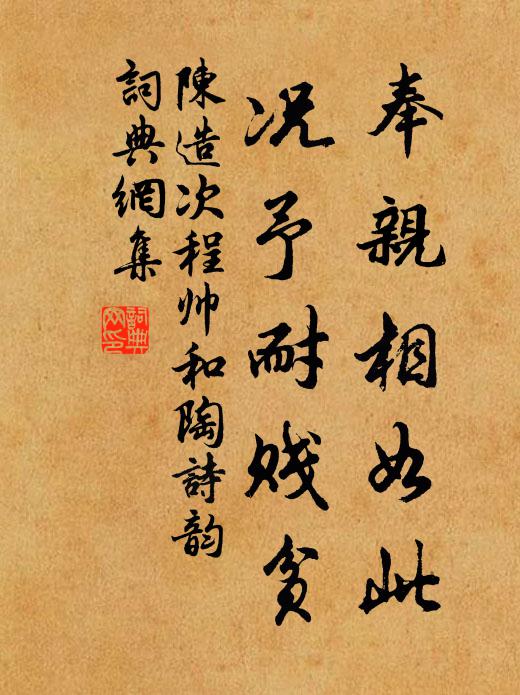 奉親相如此
况予耐贱貧
陳造次程帅和陶詩韵
詞典網集
詞典網印